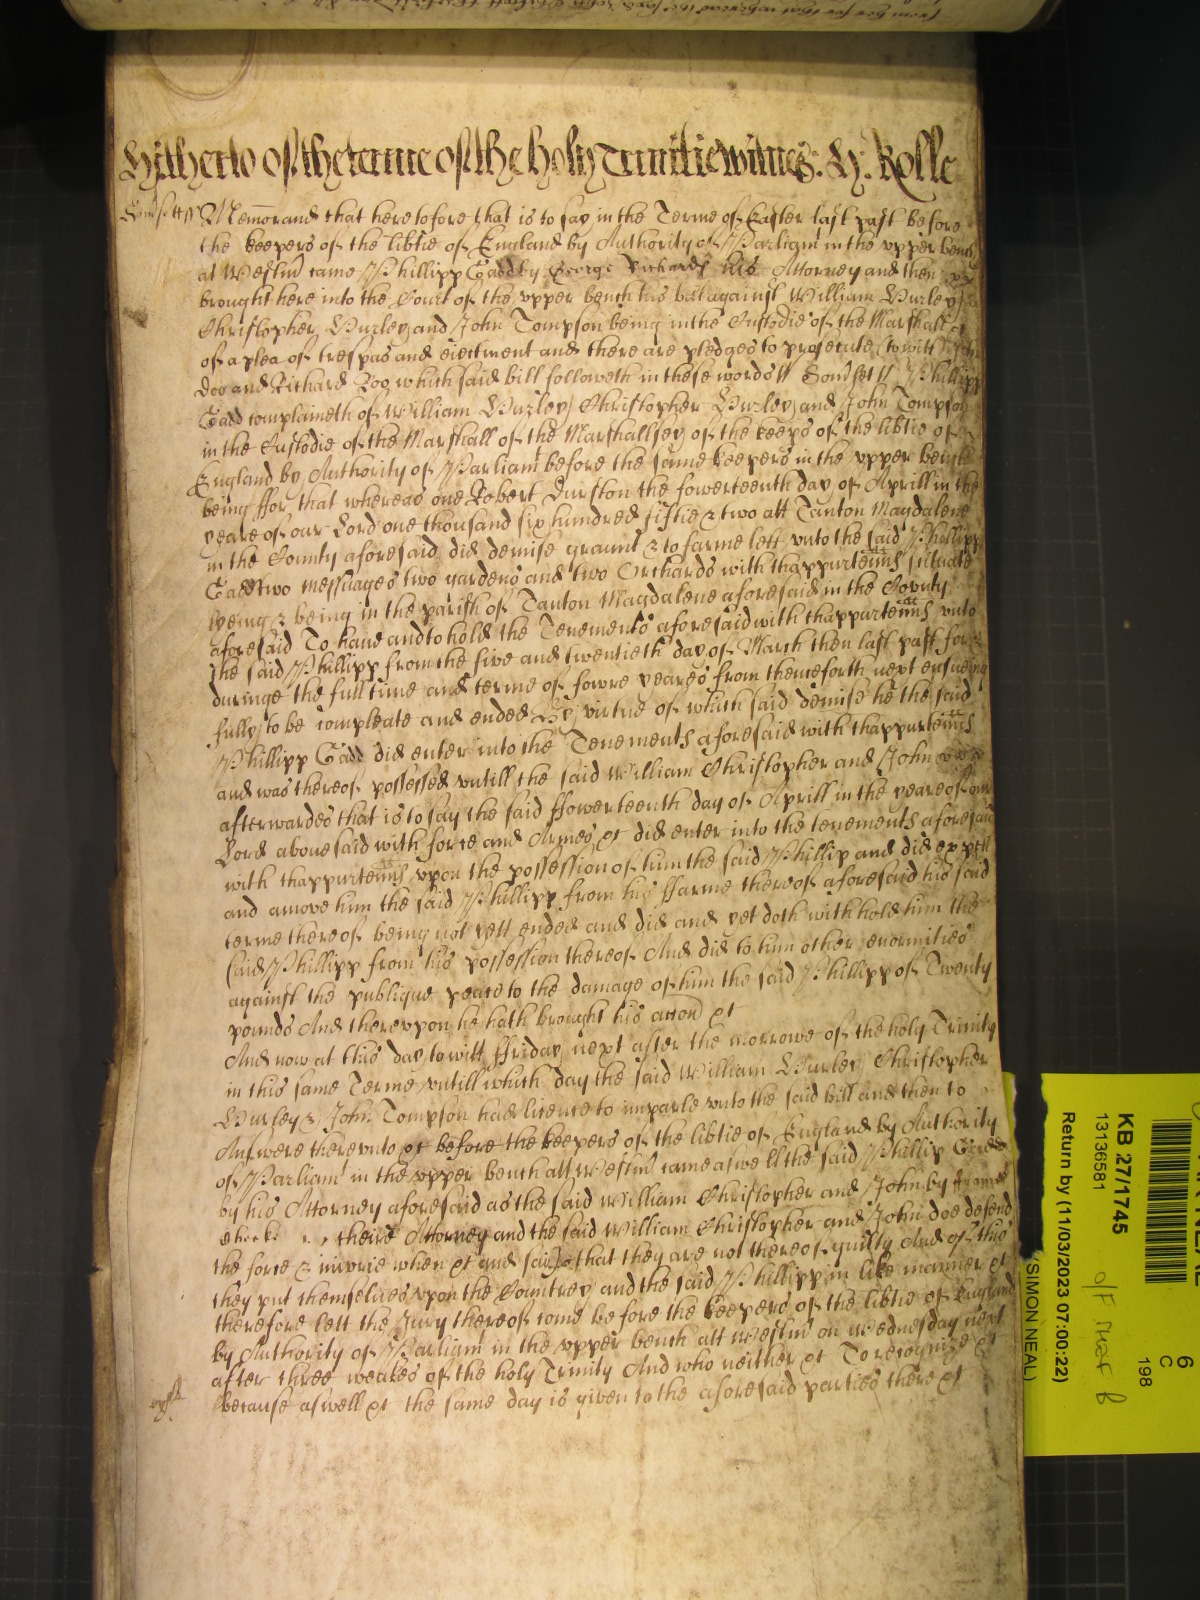 Hitherto of the terme of the holy Trinitie witnes: H: Rolle
Somsett ss Memorand that heretofore that is to say in the Terme of Easter last past before
the keepers of the libtie of England by Authority of Parliam in the vpper bench
at Westm came Phillipp Gadd by George Richards his Attorney and then
brought here into the Court of the vpper bench his bill against William Burley
Christopher Burley and John Tompson being in the Custodie of the Marshall
of a plea of trespas and eiectment and there are pledges to prosecute (to witt) John
Doo and Richard Roo which said bill followeth in these words ss Somset ss Phillipp
Gadd complaineth of William Burley Christopher Burley and John Tompson
in the Custodie of the Marshall of the Marshallsey of the keeps of the libtie of
England by Authority of Parliam before the same keepers in the vpper bench
being ffor that whereas one Robert Durston the fowerteenth day of Aprill in the
yeare of our Lord one thousand six hundred fiftie & two att Tanton Magdalene
in the County aforesaid did demise graunt & to farme lett vnto the said Phillipp
Gadd two messuages two gardens and two Orchards with thappurtenncs situate
lyeing & being in the parish of Tanton Magdalene aforesaid in the County
aforesaid To haue and to hold the Tenements aforesaid with thappurtenncs vnto
the said Phillipp from the five and twentieth day of March then last past for &
duringe the full time and terme of fowre yeares from thenceforth next ensueing
fully to be compleate and ended By virtue of which said demise he the said
Phillipp Gadd did enter into the Tenements aforesaid with thappurtenncs
and was thereof possessed vntill the said William Christopher and John
afterwardes that is to say the said ffowerteenth day of Aprill in the yeare of our
Lord abouesaid with force and Armes &c did enter into the tenements aforesaid
with thappurtenncs vpon the possession of him the said Phillip and did expell
and amove him the said Phillipp from his ffarme thereof aforesaid his said
terme thereof being not yett ended and did and yet doth withhold him the
said Phillipp from his possession thereof And did to him other enormities
against the publique peace to the damage of him the said Phillipp of Twenty
pounds And therevpon he hath brought his accon &c
And now at this day to witt ffriday next after the morrowe of the holy Trinity
in this same Terme vntill which day the said William Burley Christopher
Burley & John Tompson had licence to imparle vnto the said bill and then to
Answere therevnto &c before the keepers of the libtie of England by Authority
of Parliam in the vpper bench att Westm came aswell the said Phillip Gadd
by his Attorney aforesaid as the said William Christopher and John by
theire Attorney and the said William Christopher and John doe defend
the force & iniurie when &c and say that they are not thereof guilty And of this
they put themselues vpon the Countrey and the said Phillipp in like manner &c
therefore lett the Jury thereof come before the keepers of the libtie of England
by Authority of Parliam in the vpper bench att Westm on Wednesday next
after three weekes of the holy Trinity And who neither &c To recognize &c
because aswell &c the same day is given to the aforesaid parties there &c
6
C
198
KB 27/1745
13136581
Return by (11/03/2023 07:00:22)
(SIMON NEAL)